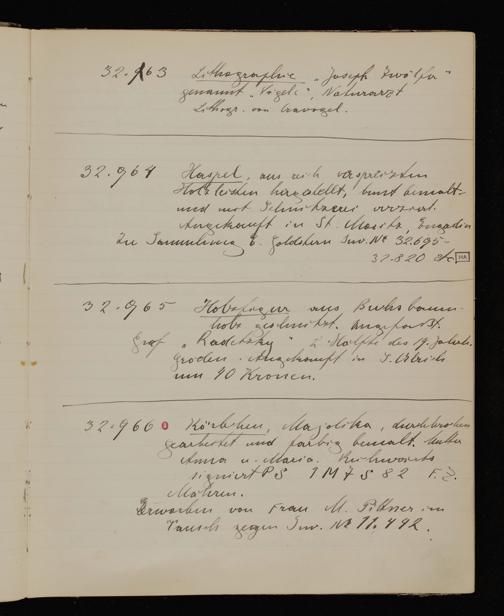 32.963 Lithographie "Joseph Zwölfer"
genannt "Vögele", Naturarzt
Lithogr. von
32.964 Haspel, aus sich verspreizten
Holzleisten hergestellt, bunt bemalt
und mit Schnitzerei verziert.
Angekauft in St. Moritz, Engadin
Zur Sammlung E. Goldstern Inv. № 32.695-
32.820 HA
32.965 Holzfigur aus Buchsbaum-
holz geschnitzt. ungefasst.
Graf "Radetzky" 2. Hälfte des 19. Jahrh.
Gröden. Angekauft in S. Ulrich
um 90 Kronen.
32.966 Körbchen, Majolika, durchbrochen
gearbeitet und farbig bemalt. Mutter
Anna u. Maria. Rückwärts
signiert PS 1M7S82 F.Z.
Mähren.
Erworben von Frau M. Pillner im
Tausch gegen Inv. № 11.492.